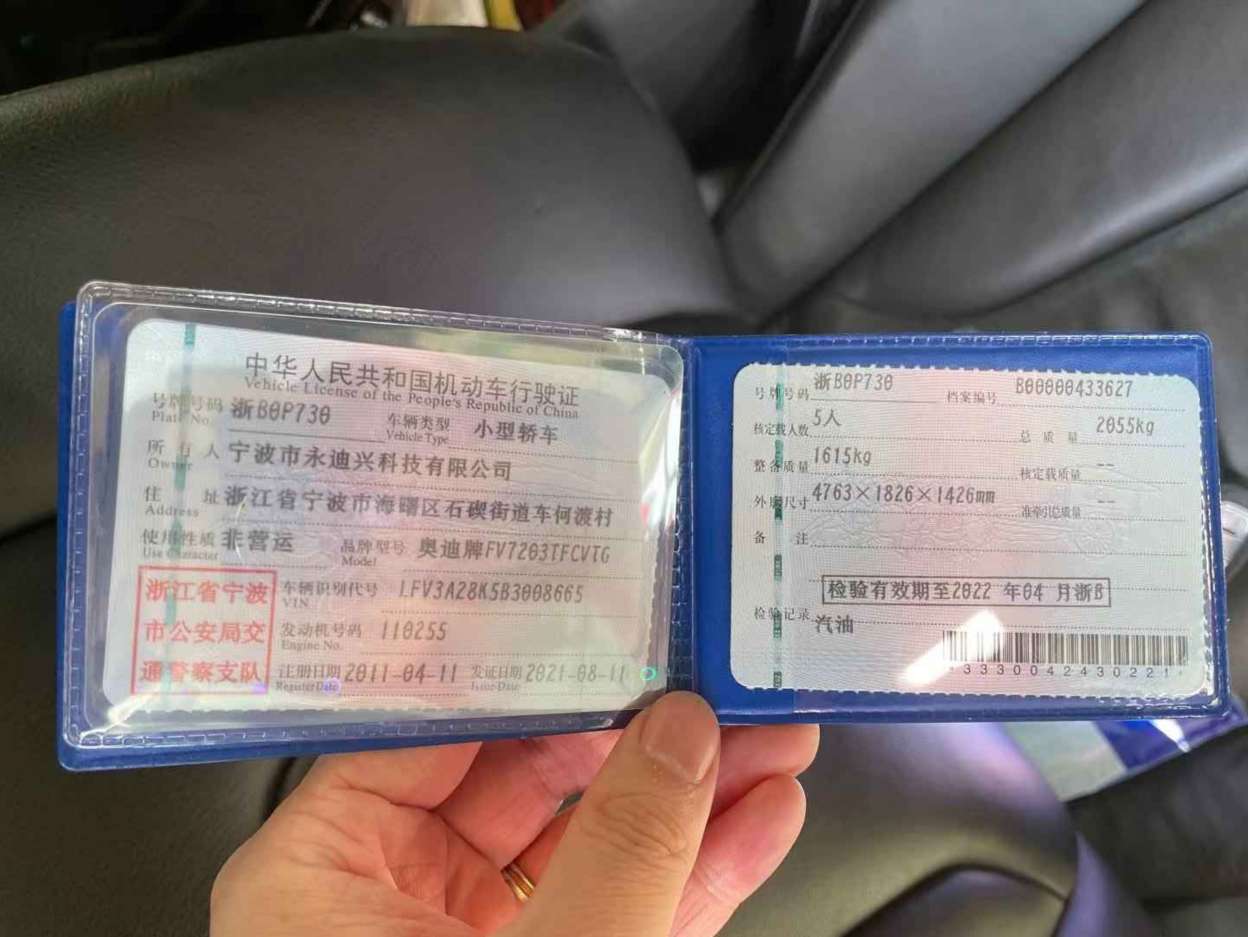 中华人民共和国机动车行驶证
Vehicle License of the People's Republic of China
号牌号码 浙B0P730 车辆类型 小型轿车
Plate No. Vehicle Type
所有人 宁波市永迪兴科技有限公司
Owner
住址 浙江省宁波市海曙区石碶街道车何渡村
Address
使用性质 非营运 品牌型号 奥迪牌FV7203TFCVTG
Use Character Model
浙江省宁波
市公安局交
通警察支队
车辆识别代号 LFV3A28K5B3008665
VIN
发动机号码 110255
Engine No.
注册日期 2011-04-11 发证日期 2021-08-11
Register Date Issue Date
号牌号码 浙B0P730 档案编号 B00000433627
核定载人数 5人 总质量 2055kg
整备质量 1615kg 核定载质量 --
外廓尺寸 4763×1826×1426mm 准牵引总质量 --
备注
检验有效期至2022 年04 月浙B
检验记录
汽油
3330042430221